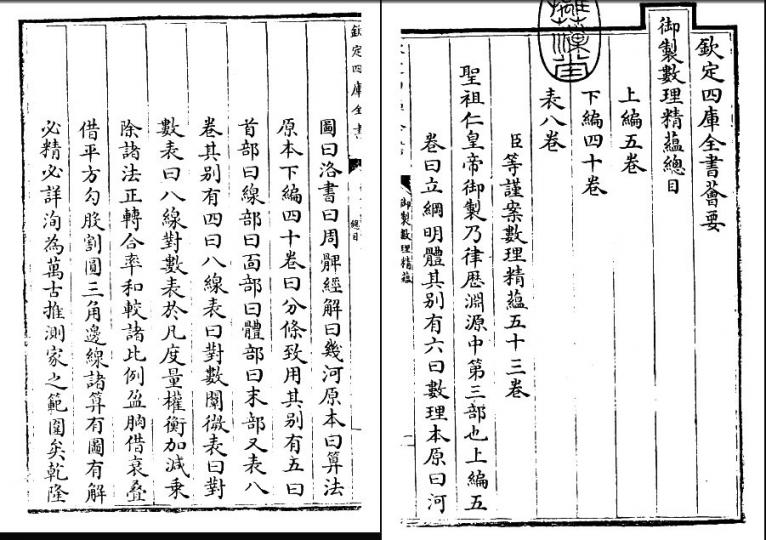 欽定四庫全書薈要
御製數理精蘊總目
上編五卷
下編四十卷
表八卷
臣等謹案數理精蘊五十三卷
聖祖仁皇帝御製乃律厯淵源中第三部也上編五
卷曰立綱明體其别有六曰數理本原曰河
御製數理精蘊
欽定四庫全書
總目
圖曰洛書曰周髀經解曰幾何原本曰算法
原本下編四十卷曰分條致用其别有五曰
首部曰線部曰面部曰體部曰末部又表八
卷其别有四曰八線表曰對數闡微表曰對
數表曰八線對數表於凡度量權衡加減乗
除諸法正轉合率和較諸比例盈朒借衰疊
借平方勾股割圓三角邊線諸算有圖有解
必精必詳洵為萬古推測家之範圍矣乾隆